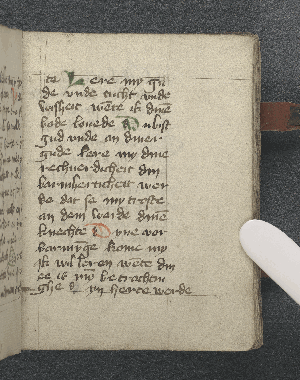 te Lere my gu
de vnde tucht vnde
wisheit wēte ik dinē
bode louede Du bist
gud vnde an diner
gude lere my dine
rechuerdicheit din
barmherticheit wer
de dat se my troste
an dem worde dine
knechte Dyne vor
barminge kome my
ik wil leren wēte din
ee is myn betrachtin
ghe myn herte werde